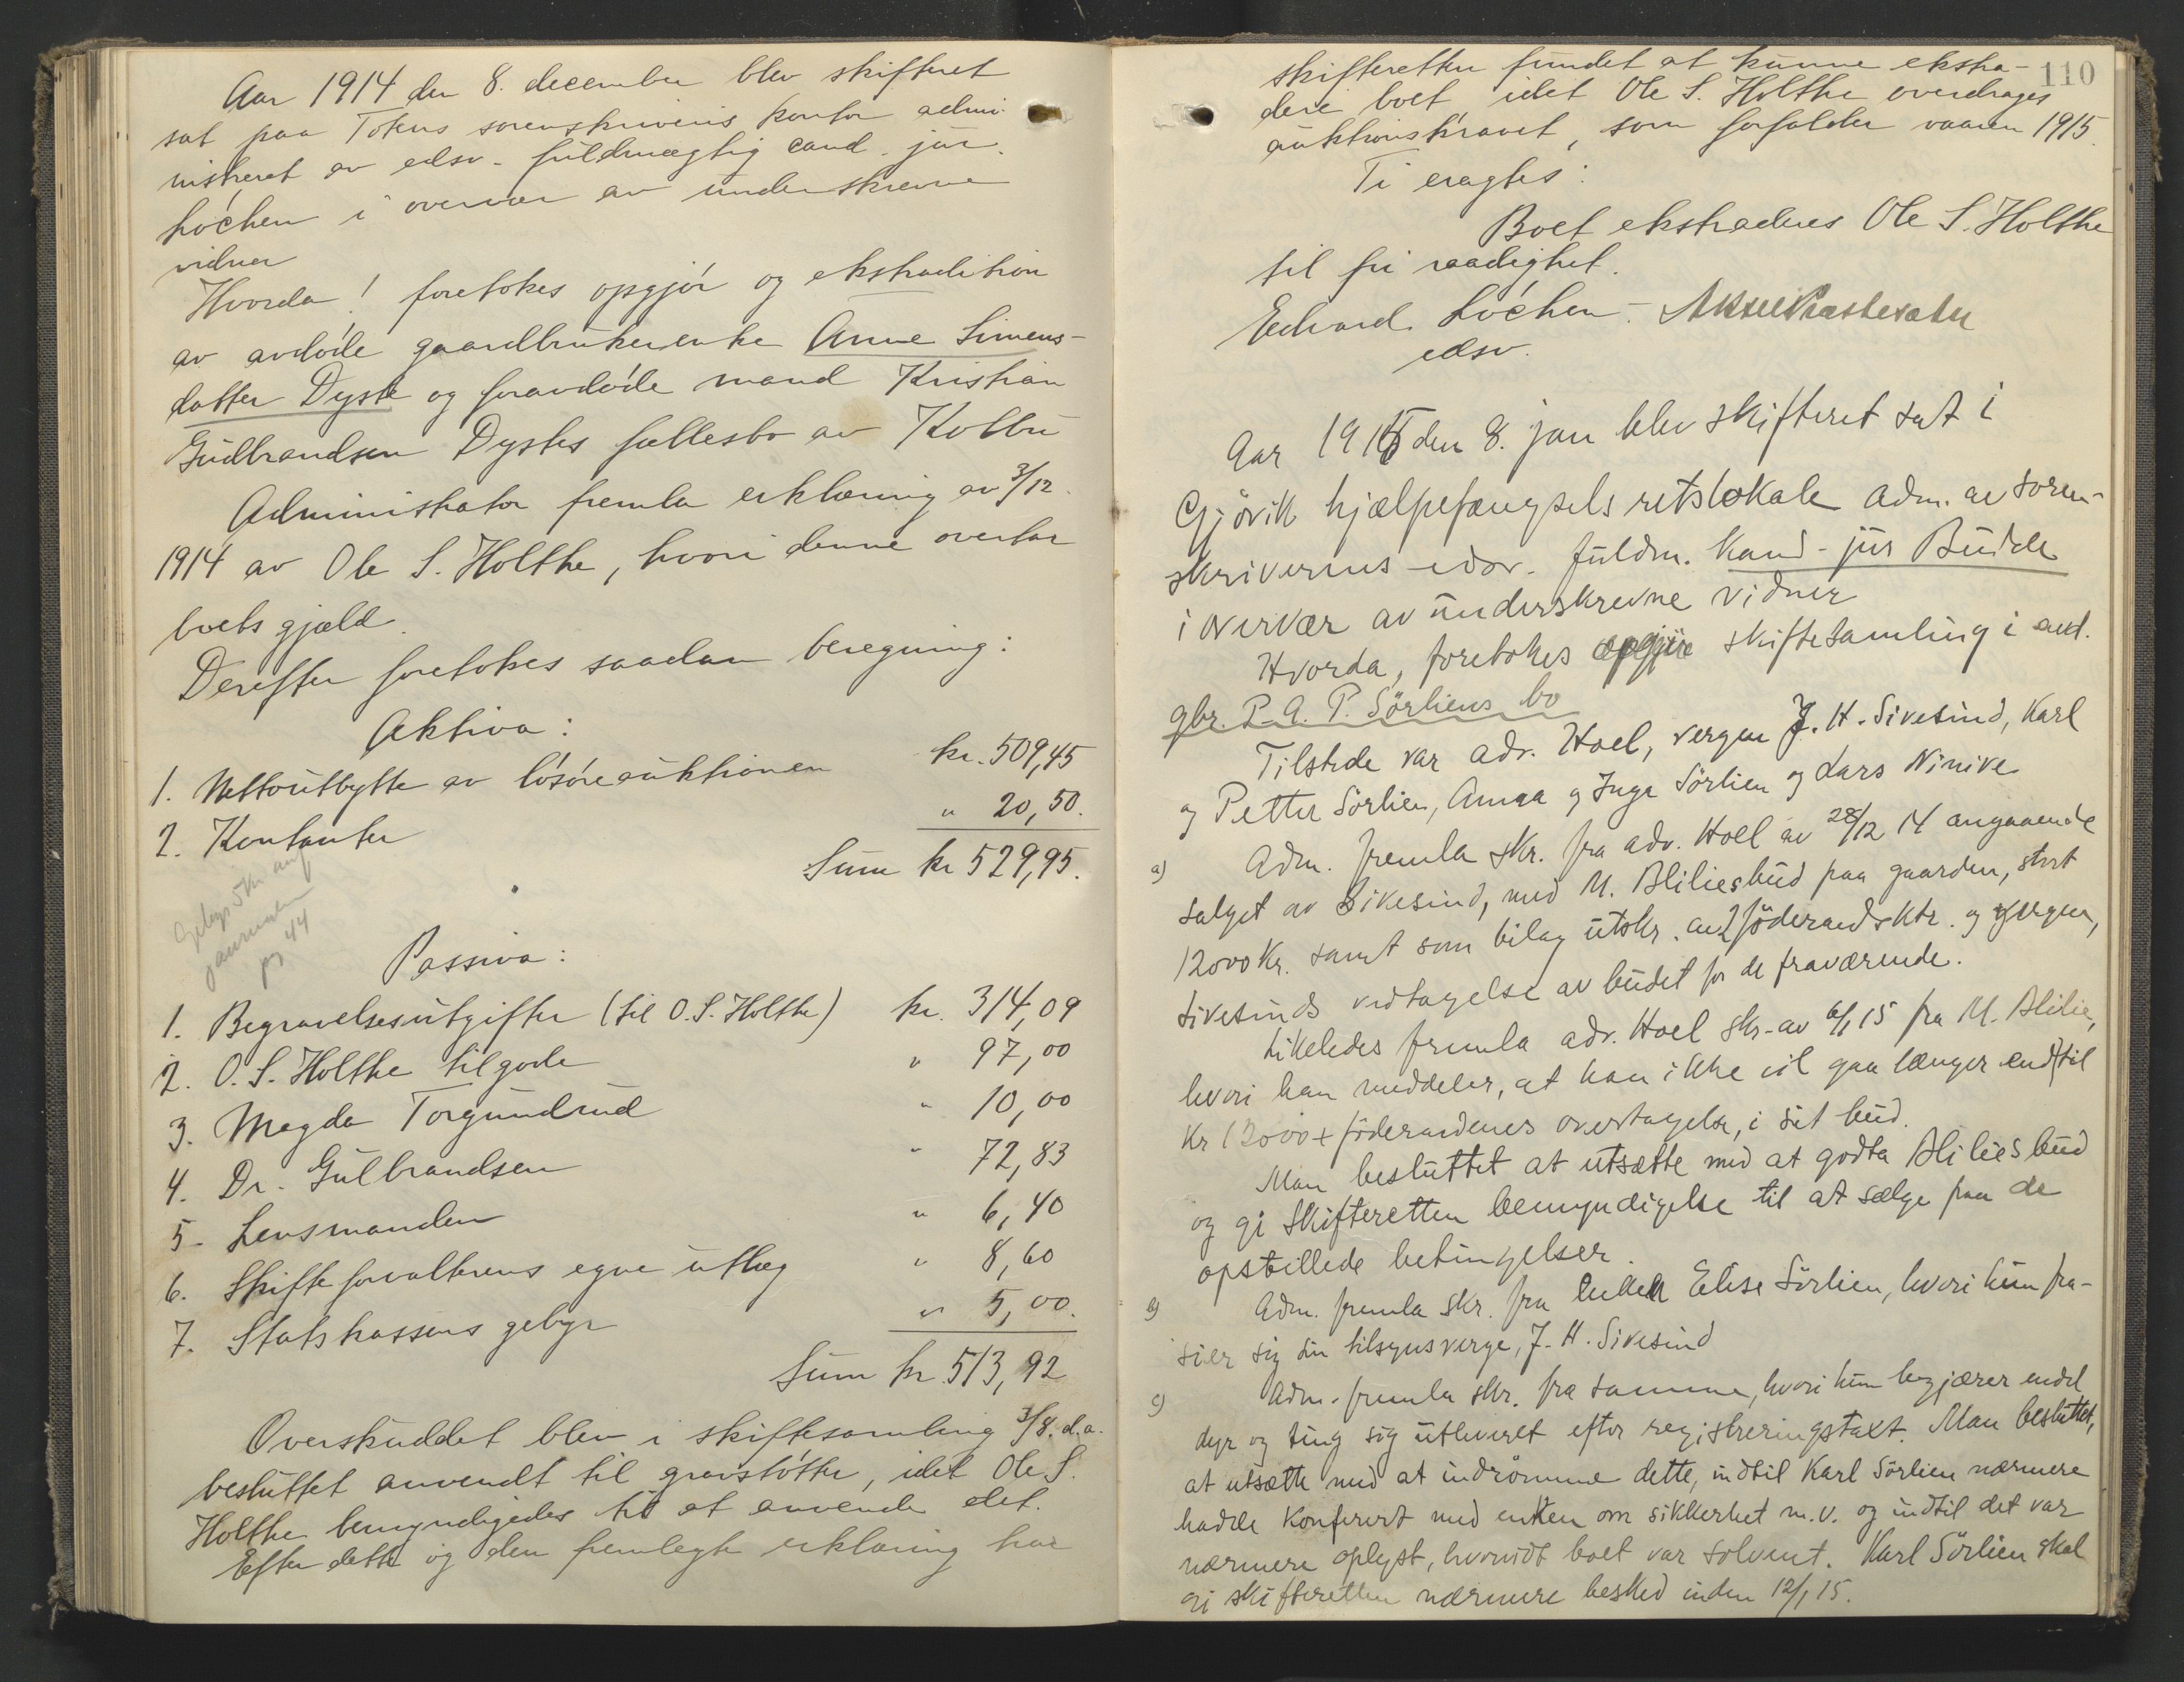 Aar 1914 den 8. december blev skifteret
sat paa Totens sorenskriveris kontor admi-
nistreret av edsv. fuldmægtig cand. jur.
Løchen i overvær av underskrevne
vidner
Hvorda! foretokes opgjør og ekstradition
av avdøde gaardbrukerenke Anne Simens-
datter Dyste og foravdøde mand Kristian
Gudbrandsen Dystes fællesbo av Kolbu
Administrator fremla erklæring av 3/12
1914 av Ole S. Holthe, hvori denne overtar
boets gjæld.
Derefter foretokes saadan beregning:
Aktiva:
1. Nettoutbytte av løsøreauktionen kr. 509,45
2. Kontanter " 20,50.
Sum kr 529,95.
pg 44
Passiva:
1. Begravelsesutgifter (til O. S. Holthe) kr. 314,09
2. O. S. Holthe tilgode " 97,00
3. Magda Torgundrud " 10,00
4. Dr. Gulbrandsen " 72,83
5. Lensmanden " 6,40
6. Skifteforvalterens egne utlæg " 8,60
7. Statskassens gebyr " 5,00.
Sum kr. 513,92
Overskuddet blev i skiftesamling 3/8. d.a.
besluttet anvendt til gravstøtte, idet Ole S.
Holthe bemyndigedes til at anvende det.
Efter dette og den fremlagte erklæring har
110
skifteretten fundet at kunne ekstra-
dere boet, idet Ole S. Holthe overdrages
auktionskravet, som forfalder vaaren 1915.
Ti eragtes:
Boet ekstraderes Ole S. Holthe
til fri raadighet.
Edvard Løchen -
edsv.
Aar 1915 den 8. jan blev skifteret sat i
Gjøvik hjælpefængsels retslokale adm. av soren-
skriverens edsv. fuldm. Kand. jur Budde
i overvær av underskrevne vidner
Hvorda, foretokes opgjør skiftesamling i avd.
gbr. P. A. P. Sörliens bo
Tilstede var adv. Hoel, vergen J. H. Sivesind, Karl
og Petter Sörlien, Anna og Inga Sörlien og Lars Ninive
a) Adm. fremla skr. fra adv. Hoel av 28/12 14 angaaende
salget av Sivesind, med M. Blilies bud paa gaarden, stort
12000 kr. samt som bilag utskr. av 2 föderaadsktr. og vergen,
Sivesinds vedtagelse av budet for de fraværende.
Likeledes fremla adv. Hoel skr. av 6/1 15 fra M. Blilie,
hvori han meddeler, at han ikke vil gaa længer end til
Kr 12000 + föderaadenes overtagelse, i sit bud.
Man besluttet at utsætte med at godta Blilies bud
og gi skifteretten bemyndigelse til at sælge paa de
opstillede betingelser.
b) Adm. fremla skr. fra enken Elise Sörlien, hvori hun fra-
sier sig sin tilsynsverge, J. H. Sivesind
c) Adm. fremla skr. fra samme, hvori hun begjærer endel
dyr og ting sig utleveret efter registreringstaxt. Man besluttet,
at utsætte med at indrömme dette, indtil Karl Sörlien nærmere
hadde konferert med enken om sikkerhet m.v. og indtil det var
nærmere oplyst, hvorvidt boet var solvent. Karl Sörlien skal
gi skifteretten nærmere besked inden 12/1 15.